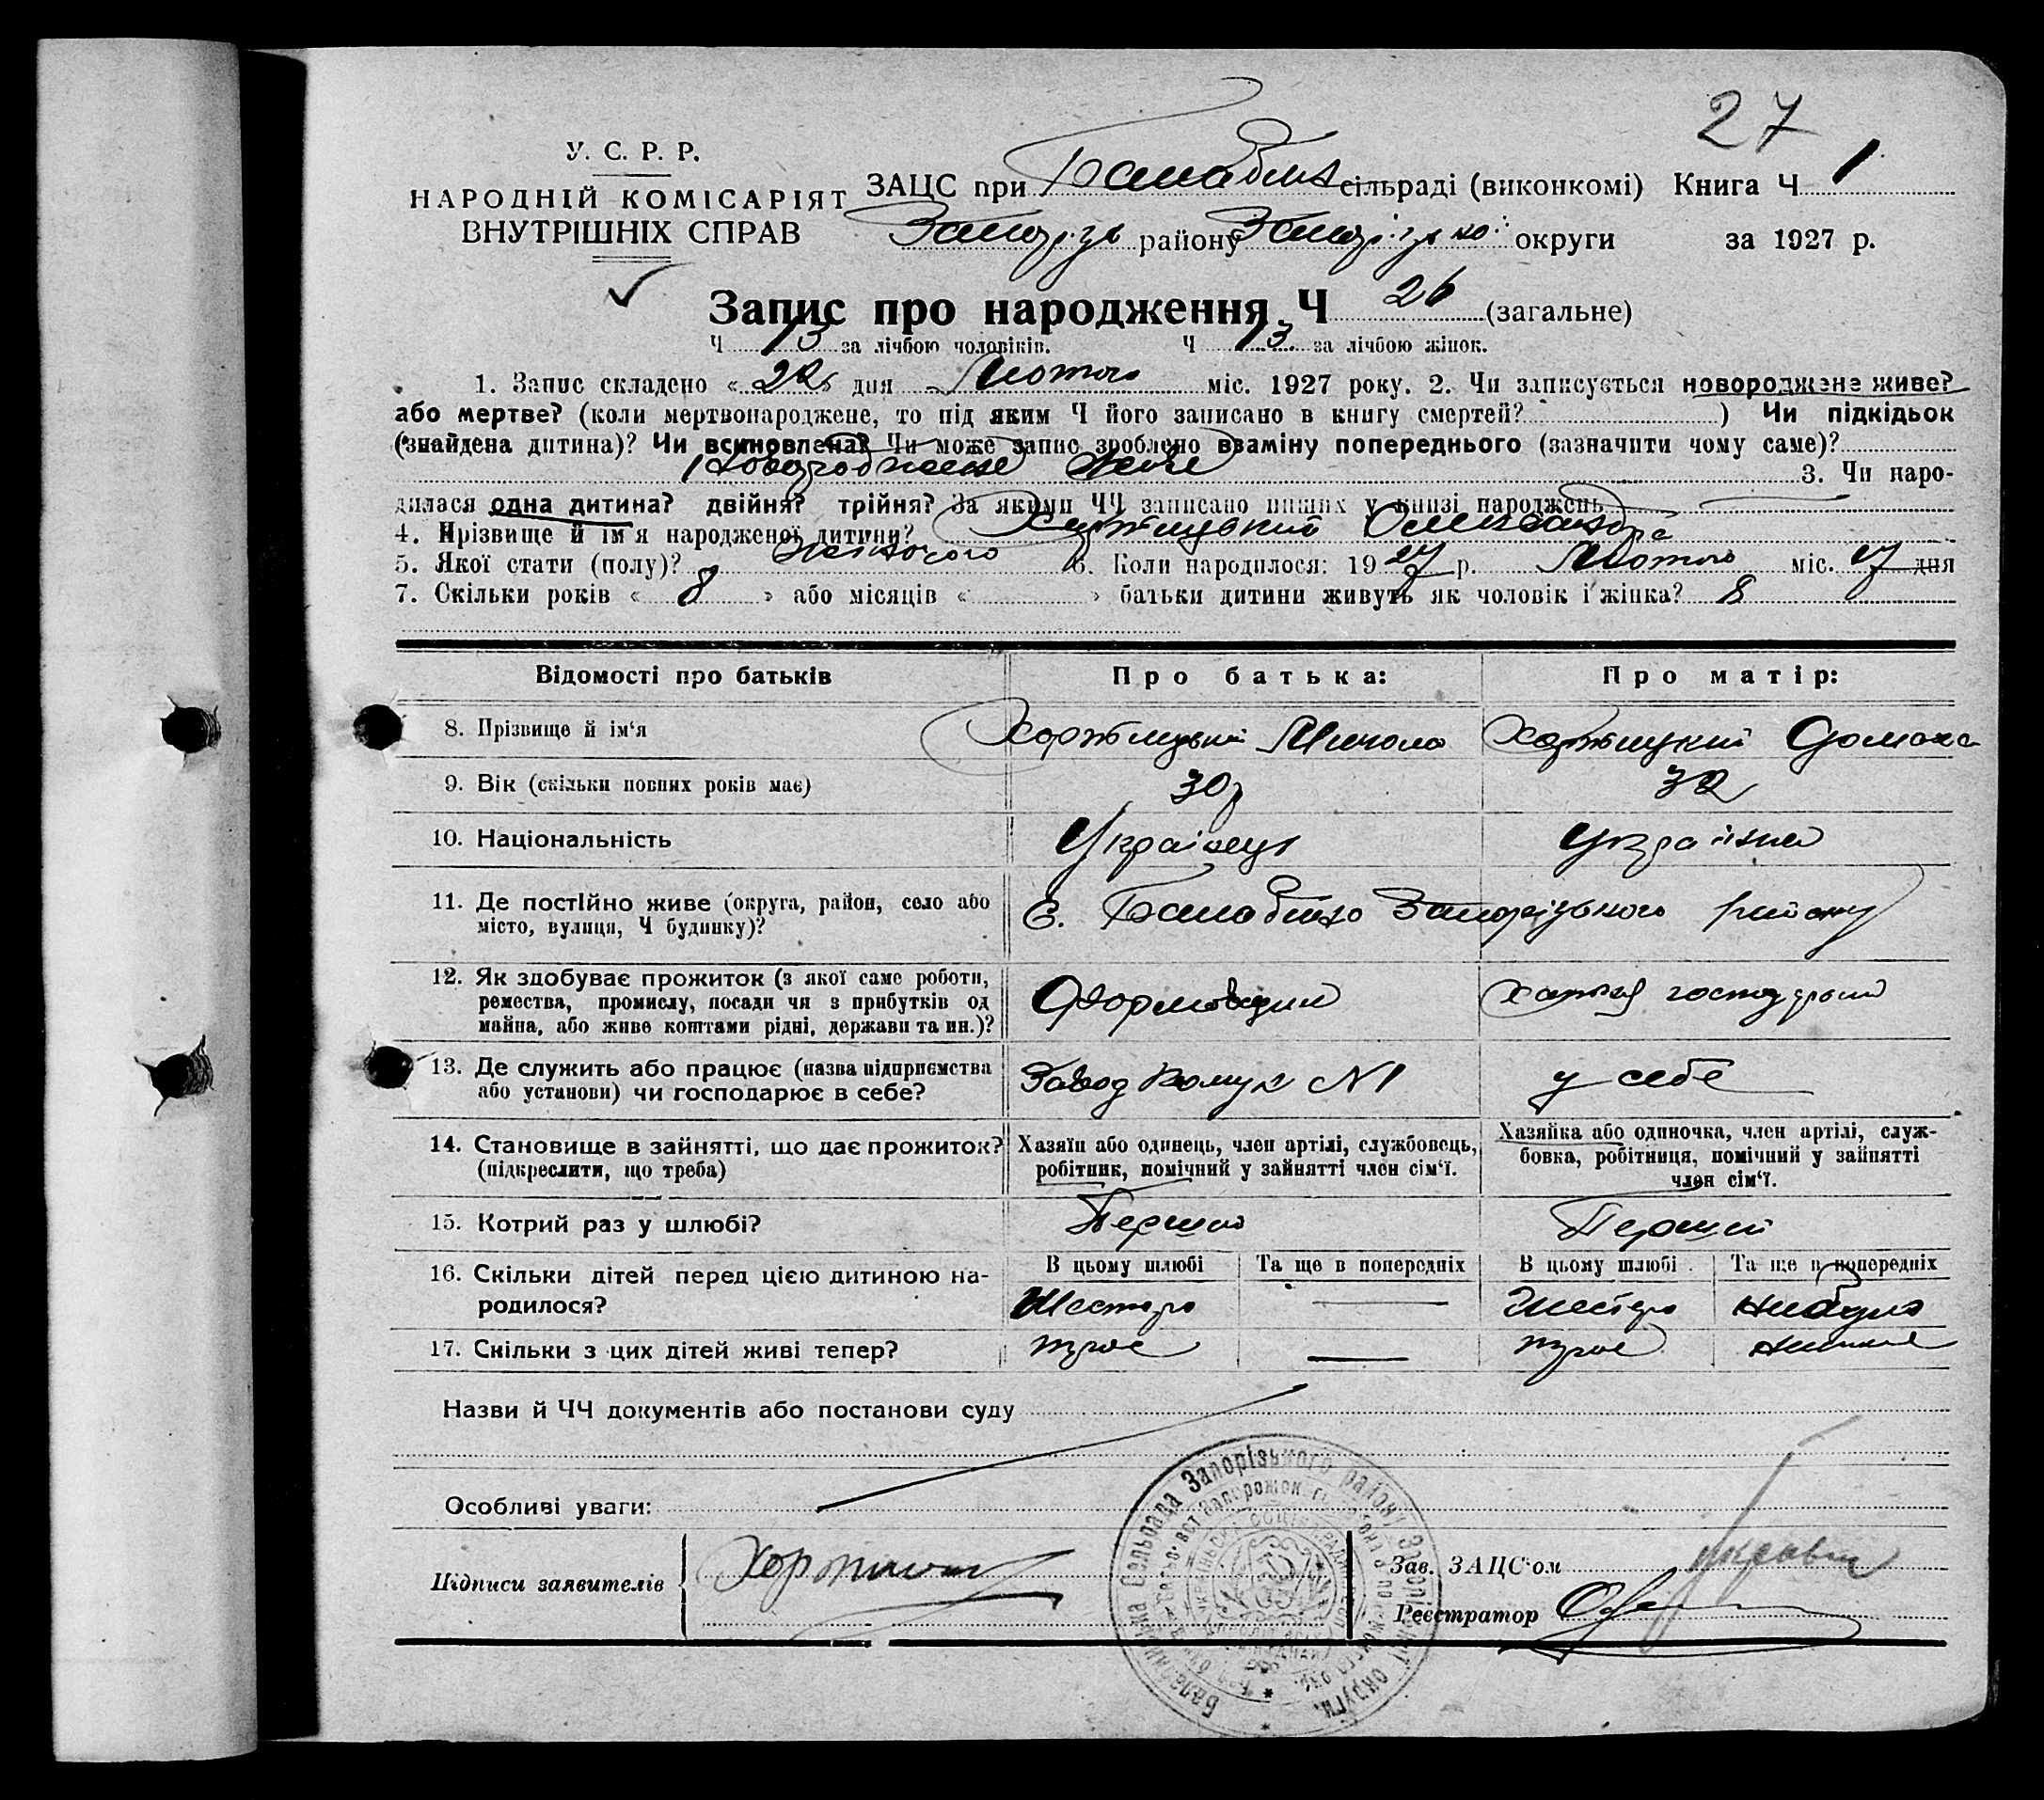 27
У. С. Р. Р.
НАРОДНІЙ КОМІСАРІЯТ
ВНУТРІШНІХ СПРАВ
ЗАЦС при Балабин сільраді (виконкомі) Книга Ч 1
району округи за 1927 р.
Запис про народження Ч 26 (загальне)
Ч 13 за лічбою чоловіків. Ч 13 за лічбою жінок.
1. Запис складено « 22 » дня Лютого міс. 1927 року. 2. Чи записується новороджене живе?
або мертве? (коли мертвонароджене, то під яким Ч його записано в книгу смертей? ) Чи підкідьок
(знайдена дитина)? Чи всиновлена? Чи може запис зроблено взаміну попереднього (зазначити чому саме)?
Новороджене живе 3. Чи наро-
дилася одна дитина? двійня? трійня? За якими ЧЧ записано инших у книзі народжень
4. Прізвище й ім'я народженої дитини? Хортицький Олександра
5. Якої стати (полу)? Жіночого 6. Коли народилося: 1927 р. Лютого міс. 17 дня
7. Скільки років « 8 » або місяців « » батьки дитини живуть як чоловік і жінка? 8
Відомості про батьків Про батька: Про матір:
8. Прізвище й ім'я Хортицький Микола Хортицкий Домаха
9. Вік (скільки повних років має) 30 р 32
10. Національність Українець Українка
11. Де постійно живе (округа, район, село або
місто, вулиця, Ч будинку)? С. Балабино Запорізького району
12. Як здобуває прожиток (з якої саме роботи,
ремества, промислу, посади чи з прибутків од
майна, або живе коштами рідні, держави та ин.)? Формовщик
13. Де служить або працює (назва підприємства
або установи) чи господарює в себе? Завод Комун N1 у себе
14. Становище в зайнятті, що дає прожиток?
(підкреслити, що треба)
Хазяїн або одинець, член артілі, службовець,
робітник, помічний у зайнятті член сім'ї.
Хазяйка або одиночка, член артілі, служ-
бовка, робітниця, помічний у зайнятті
член сім'ї.
15. Котрий раз у шлюбі? Перший Перший
16. Скільки дітей перед цією дитиною на-
родилося?
В цьому шлюбі Та ще в попередніх В цьому шлюбі Та ще в попередніх
Шестеро — Шестеро Небуло
17. Скільки з цих дітей живі тепер? троє — троє
Назви й ЧЧ документів або постанови суду
Особливі уваги:
Підписи заявителів
Зав. ЗАЦС'ом
Реєстратор
Балабинська Сельрада Запорізького району Запорізької округи.